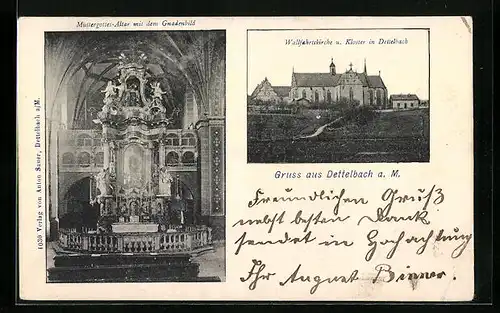 Muttergottes-Altar mit dem Gnadenbild
Wallfahrtskirche u. Kloster in Dettelbach
1039 Verlag von Anton Sauer, Dettelbach a/M.
Gruss aus Dettelbach a. M.
Freundlichen Gruß
nebst besten Dank
sendet in Hochachtung
Ihr August